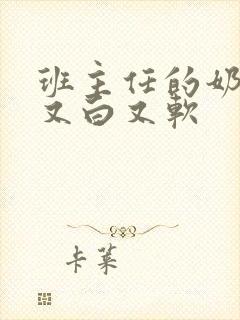 班主任的奶
又白又软
卡莱